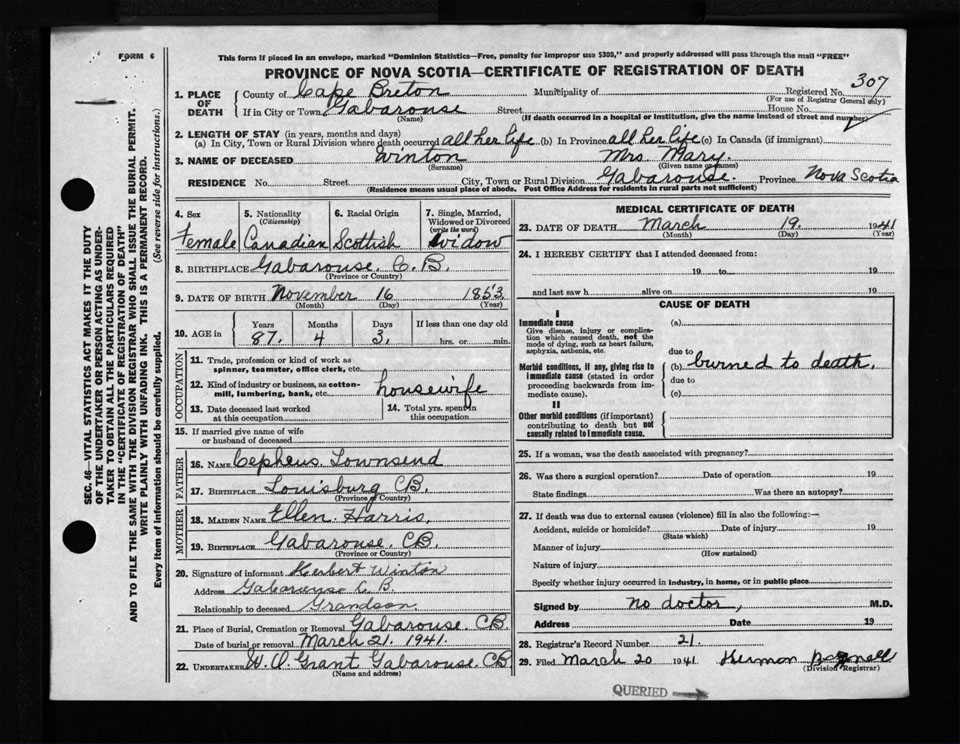 FORM 6
This form if placed in an envelope, marked "Dominion Statistics—Free, penalty for improper use $300," and properly addressed will pass through the mail "FREE"
PROVINCE OF NOVA SCOTIA—CERTIFICATE OF REGISTRATION OF DEATH
307
1. PLACE OF DEATH County of Cape Breton Municipality of Registered No.
(For use of Registrar General only)
If in City or Town Gabarouse Street House No.
(Name) (If death occurred in a hospital or institution, give the name instead of street and number)
2. LENGTH OF STAY (in years, months and days)
(a) In City, Town or Rural Division where death occurred all her life (b) In Province all her life (c) In Canada (if immigrant)
3. NAME OF DECEASED Winton Mrs. Mary.
(Surname) (Given name or names)
RESIDENCE No. Street City, Town or Rural Division Gabarouse. Province Nova Scotia
(Residence means usual place of abode. Post Office Address for residents in rural parts not sufficient)
4. Sex 5. Nationality (Citizenship) 6. Racial Origin 7. Single, Married, Widowed or Divorced (write the word)
Female Canadian Scottish Widow
8. BIRTHPLACE Gabarouse. C.B.
(Province or Country)
9. DATE OF BIRTH November 16 1853.
(Month) (Day) (Year)
10. AGE in Years Months Days If less than one day old
87. 4 3. hrs. or min.
OCCUPATION
11. Trade, profession or kind of work as spinner, teamster, office clerk, etc.
12. Kind of industry or business, as cotton-mill, lumbering, bank, etc. housewife
13. Date deceased last worked at this occupation 14. Total yrs. spent in this occupation
15. If married give name of wife or husband of deceased
FATHER
16. NAME Cepheus Townsend
17. BIRTHPLACE Louisburg CB.
(Province or Country)
MOTHER
18. MAIDEN NAME Ellen Harris.
19. BIRTHPLACE Gabarouse. CB.
(Province or Country)
20. Signature of informant Herbert Winton
Address Gabarouse C.B.
Relationship to deceased Grandson.
21. Place of Burial, Cremation or Removal Gabarouse. CB.
Date of burial or removal March 21. 1941.
22. UNDERTAKER W.O. Grant Gabarouse. CB
(Name and address)
MEDICAL CERTIFICATE OF DEATH
23. DATE OF DEATH March 19. 1941
(Month) (Day) (Year)
24. I HEREBY CERTIFY that I attended deceased from:
19 to 19
and last saw h alive on 19
CAUSE OF DEATH
I
Immediate cause
Give disease, injury or complication which caused death, not the mode of dying, such as heart failure, asphyxia, asthenia, etc.
(a)
due to
Morbid conditions, if any, giving rise to immediate cause (stated in order proceeding backwards from immediate cause).
(b) burned to death.
due to
(c)
II
Other morbid conditions (if important) contributing to death but not causally related to immediate cause.
25. If a woman, was the death associated with pregnancy?
26. Was there a surgical operation? Date of operation 19
State findings Was there an autopsy?
27. If death was due to external causes (violence) fill in also the following:—
Accident, suicide or homicide? Date of injury 19
(State which)
Manner of injury
(How sustained)
Nature of injury
Specify whether injury occurred in industry, in home, or in public place
Signed by no doctor, M.D.
Address Date 19
28. Registrar's Record Number 21.
29. Filed March 20 1941 Hermon
(Division Registrar)
QUERIED
SEC. 46—VITAL STATISTICS ACT MAKES IT THE DUTY
OF THE UNDERTAKER OR PERSON ACTING AS UNDER-
TAKER TO OBTAIN ALL THE PARTICULARS REQUIRED
IN THE "CERTIFICATE OF REGISTRATION OF DEATH"
AND TO FILE THE SAME WITH THE DIVISION REGISTRAR WHO SHALL ISSUE THE BURIAL PERMIT.
WRITE PLAINLY WITH UNFADING INK. THIS IS A PERMANENT RECORD.
Every item of information should be carefully supplied. (See reverse side for instructions.)